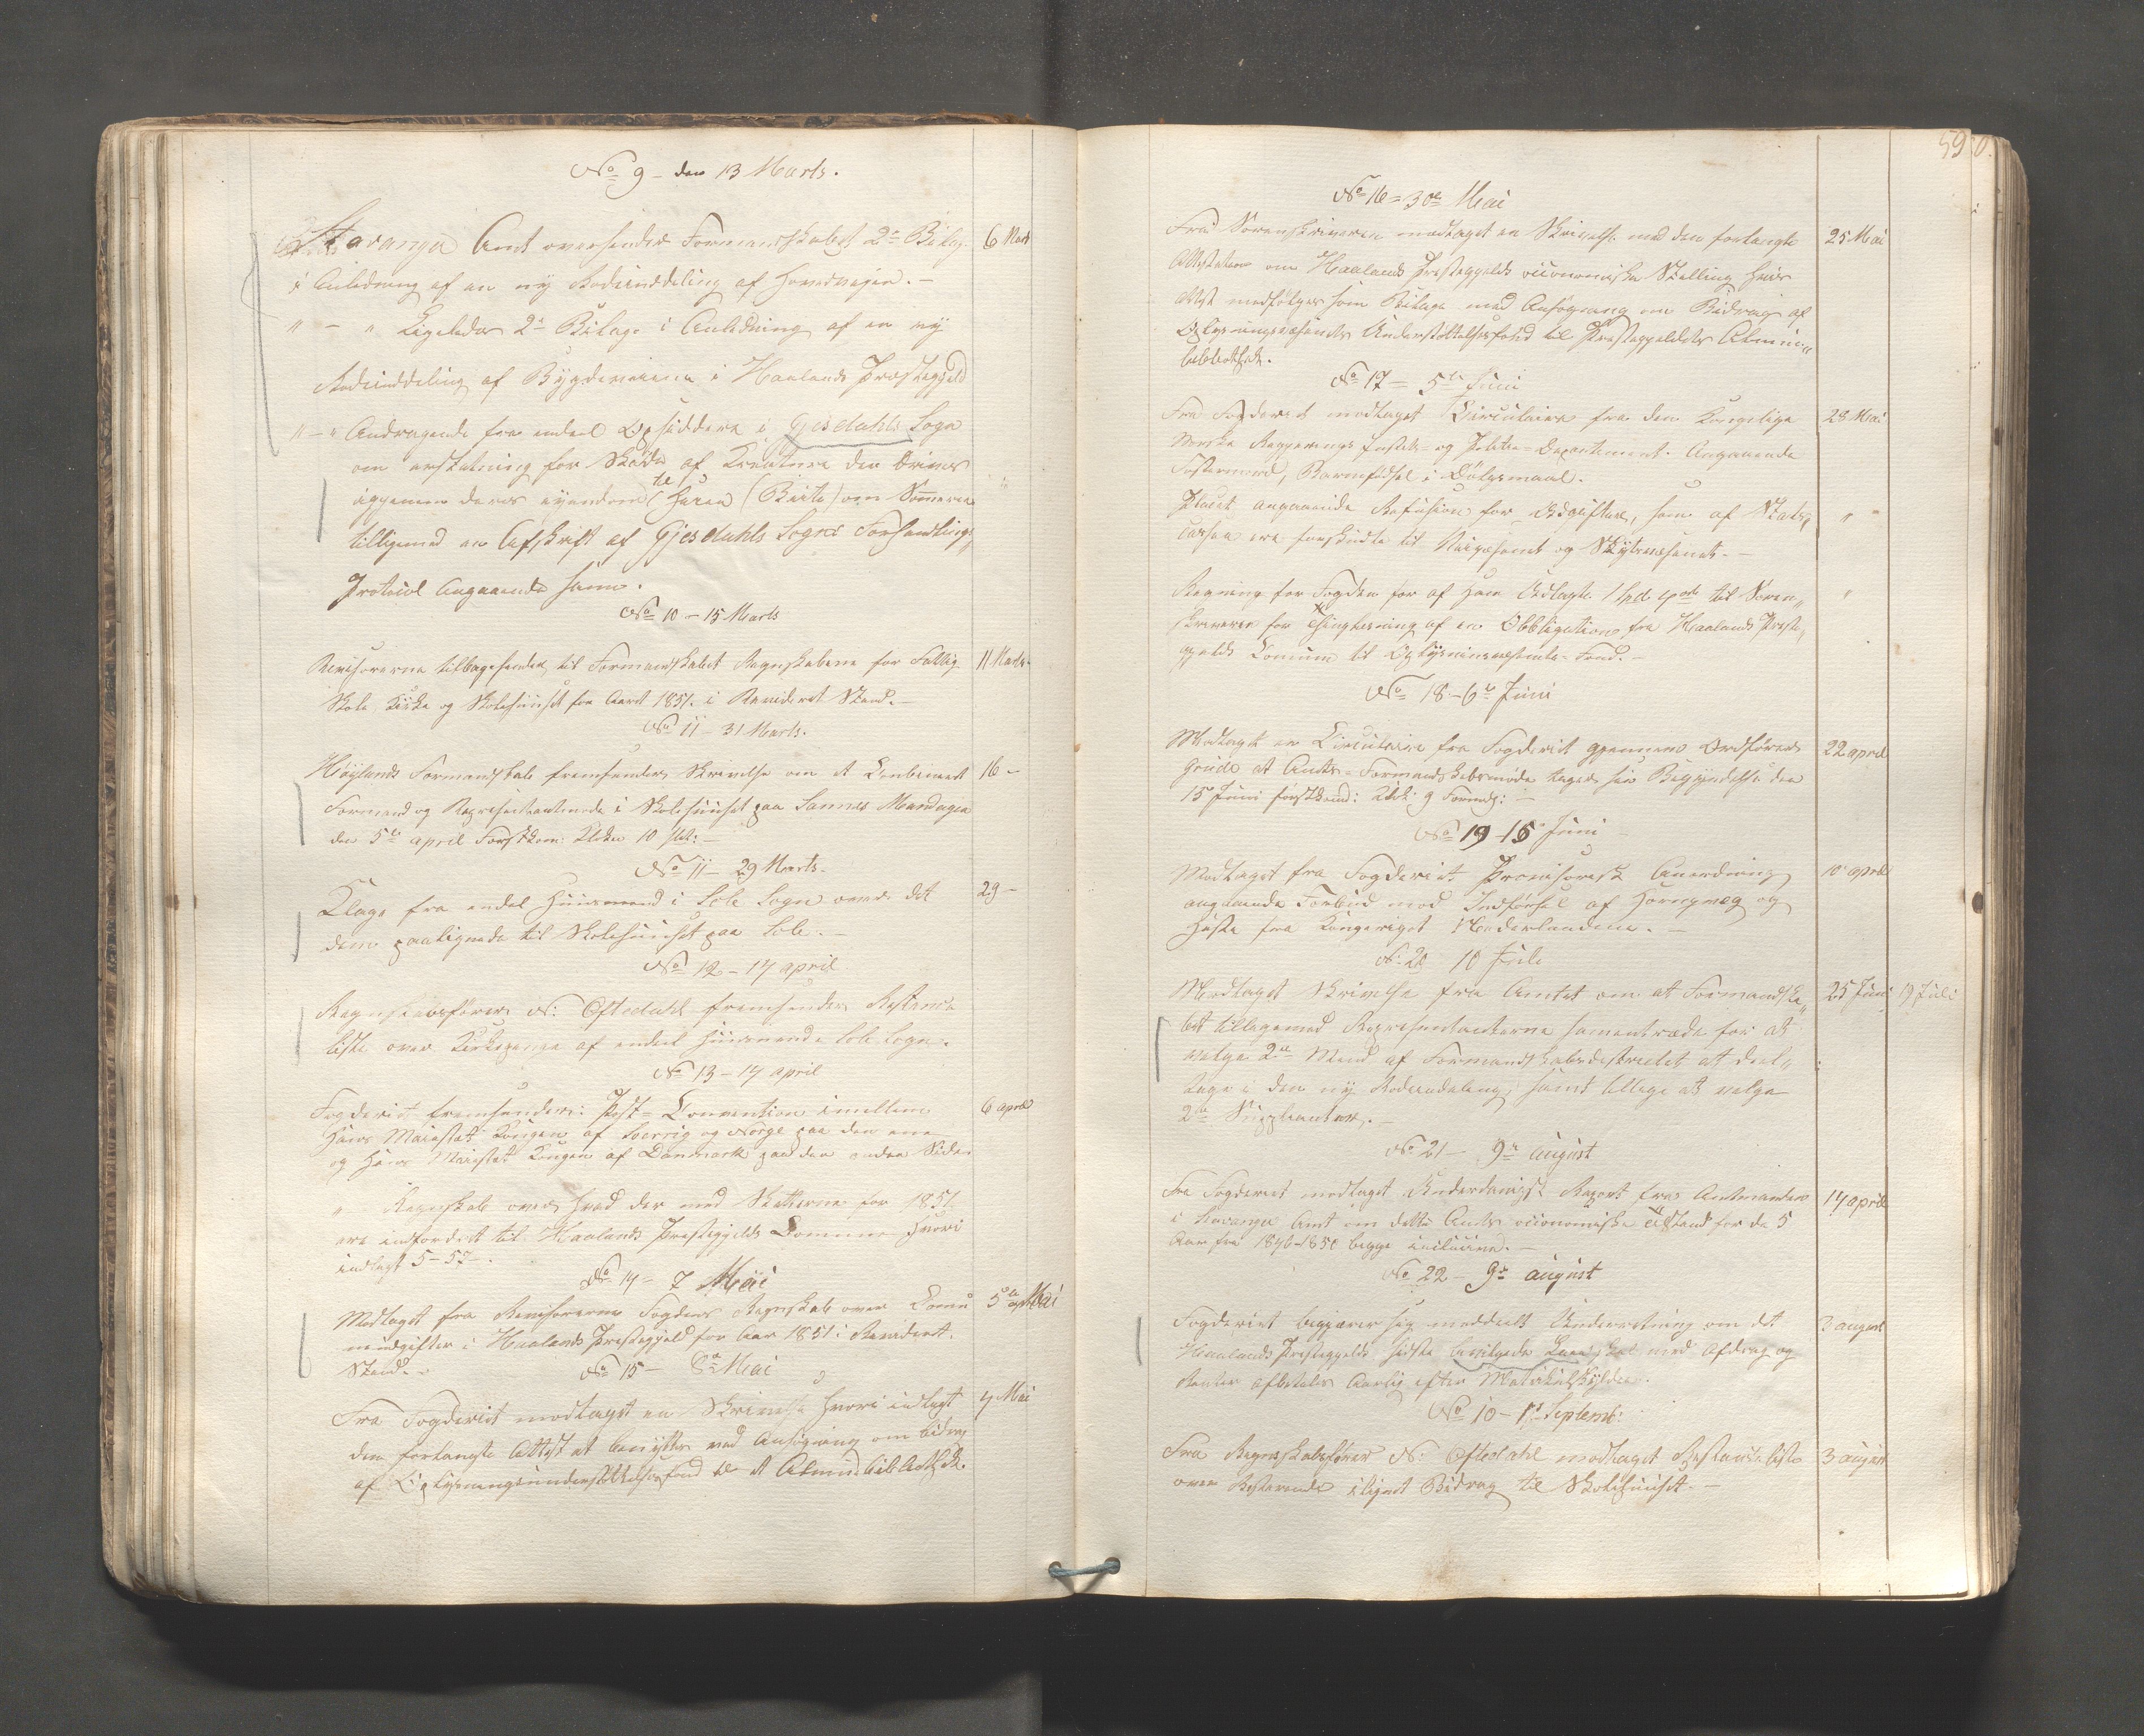 No 9 - den 13 Marts.
Stavanger Amt oversender Formandskabet 2de Bilag 6 Marts
i Anledning af en ny Rodeinddeling af Hovedveien. -
" - " Ligeledes 2de Bilage i Anledning af en ny
Rodeinddeling af Bygdeveiene i Haalands Præstegjeld
" - " Andragende fra endeel Opsiddere i Gjesdahls Sogn
om erstatning for Skade af Kreature der drives
igjennem deres eiendom til Heien (Beite) om Sommeren
tilligemed en Afskrift af Gjesdahls Sogns Forhandlings
Protocol Angaaende samme.
No 10 - 15 Marts
Revisorerne tilbagesender til Formandskabet Regnskaberne for Fattig- 11 Marts
Skole Kirke og Skolehuuset for Aaret 1851. i Revideret Stand. -
No 11 - 31 Marts.
Høylands Formandskab fremsender Skrivelse om et Combineret 16 -
Formand og Representantmøde i Skolehuuset paa Sannes Mandagen
den 5te april Førstkom: Klokken 10 slet: -
No 11 - 29 Marts.
Klage fra endel Huusmænd i Sole Sogn over det 29 -
dem paalignede til Skolehuuset paa Sole. -
No 12 - 14 april
Regnskabsfører N: Oftedahl fremsender Restance
liste over Kirkepenge af endeel Huusmænd i Sole Sogn.
No 13 - 14 april
Fogderiet fremsender: Post-Convention imellem 6 april
Hans Maiestæt Kongen af Sverrig og Norge paa den ene
og Hans Maiestæt Kongen af Danmark paa den anden Side.
" Regnskab over hvad der med Skatterne for 1851
ere indfordret til Haalands Prestegjelds Commune hvori
indlagt 5 - 52 - .
No 14 - 7 Mai
Modtaget fra Revisorerne Fogdens Regnskab over Comu 5te Mai
neudgifter i Haalands Prestegjeld for Aar 1851 i Revideret.
Stand. -
No 15 - 8de Mai
Fra Fogderiet modtaget en Skrivelse hvori indlagt 4 Mai
den forlangte Attest at benyttes ved Ansøgning om bidrag
af Oplysningsunderstøttelsesfond til et Almuebibliothek.
590.
No 16 - 30te Mai
Fra Sorenskriveren modtaget en Skrivelse med den forlangte 25 Mai
Attestation om Haalands Prestegjelds oiconomiske Stilling hvis
Attest medfølger som Bilage med Ansøgning om Bidrag af
Oplysningsvæsenets Understøttelsesfond til Prestegjeldets Almue
bibliothek.
No 17 - 5te Juni
Fra Fogderiet modtaget Circulaire fra den Kongelige 28 Mai
Norske Regjerings Justits- og Politie-Departement. Angaaende
Fostermord, Barnefødsel i Dølgsmaal.
Placat angaaende Refusion for Udgifter, som af Stats " "
cassen ere forskudte til Veivæsenet og Skydsvæsenet. -
Regning fra Fogden for af ham Udlagte 1 Spd 4 ort til Soren "
skriveren for Thinglæsning af en Obligation fra Haalands Preste
gjelds Comune til Oplysningsvæsenets-Fond. -
No 18 - 6te Juni
Modtaget en Circulaire fra Fogderiet gjennem Ordfører 22 april
Grude at Amts-Formandskabsmøde tager sin Begyndelse den
15 Juni førstkom: Klok: 9 Formd: -
No 19 - 15 Juni -
Modtaget fra Fogderiet Provisorisk Anordning 10 april
angaaende Forbud mod Indførsel af Hornqvæg og
Heste fra Kongeriget Nederlandene. -
No 20 10 Juli
Modtaget Skrivelse fra Amtet om at Formandska 25 Juni 19 Juli
bet tilligemed Representanterne samentræde for at
velge 2de Mænd af Formandskabsdistrictet at deel
tage i den ny Rodeinddeling, samt tillige at velge
2de Suppleanter. -
No 21 - 9de august
Fra Fogderiet modtaget Underdanigst Raport fra Amtmanden 14 april
i Stavanger Amt om dette Amts oiconomiske Tilstand for de 5
Aar fra 1846-1850 begge inclusive. -
No 22 - 9de august
Fogderiet begjærer sig meddeelt Underretning om det 3 august
Haalands Prestegjelds sidste bevilgede Laan skal med Afdrag og
Renter afbetales Aarlig efter Matrikulskylden.
No 10 - 1de Septemb:
Fra Regnskabsfører N: Oftedahl modtaget Restance liste 3 august
over Resterende iligned Bidrag til Skolehuuset. -